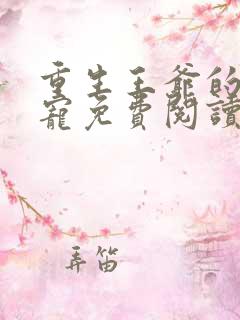 重生王爺的
寵免費閱讀
弄笛